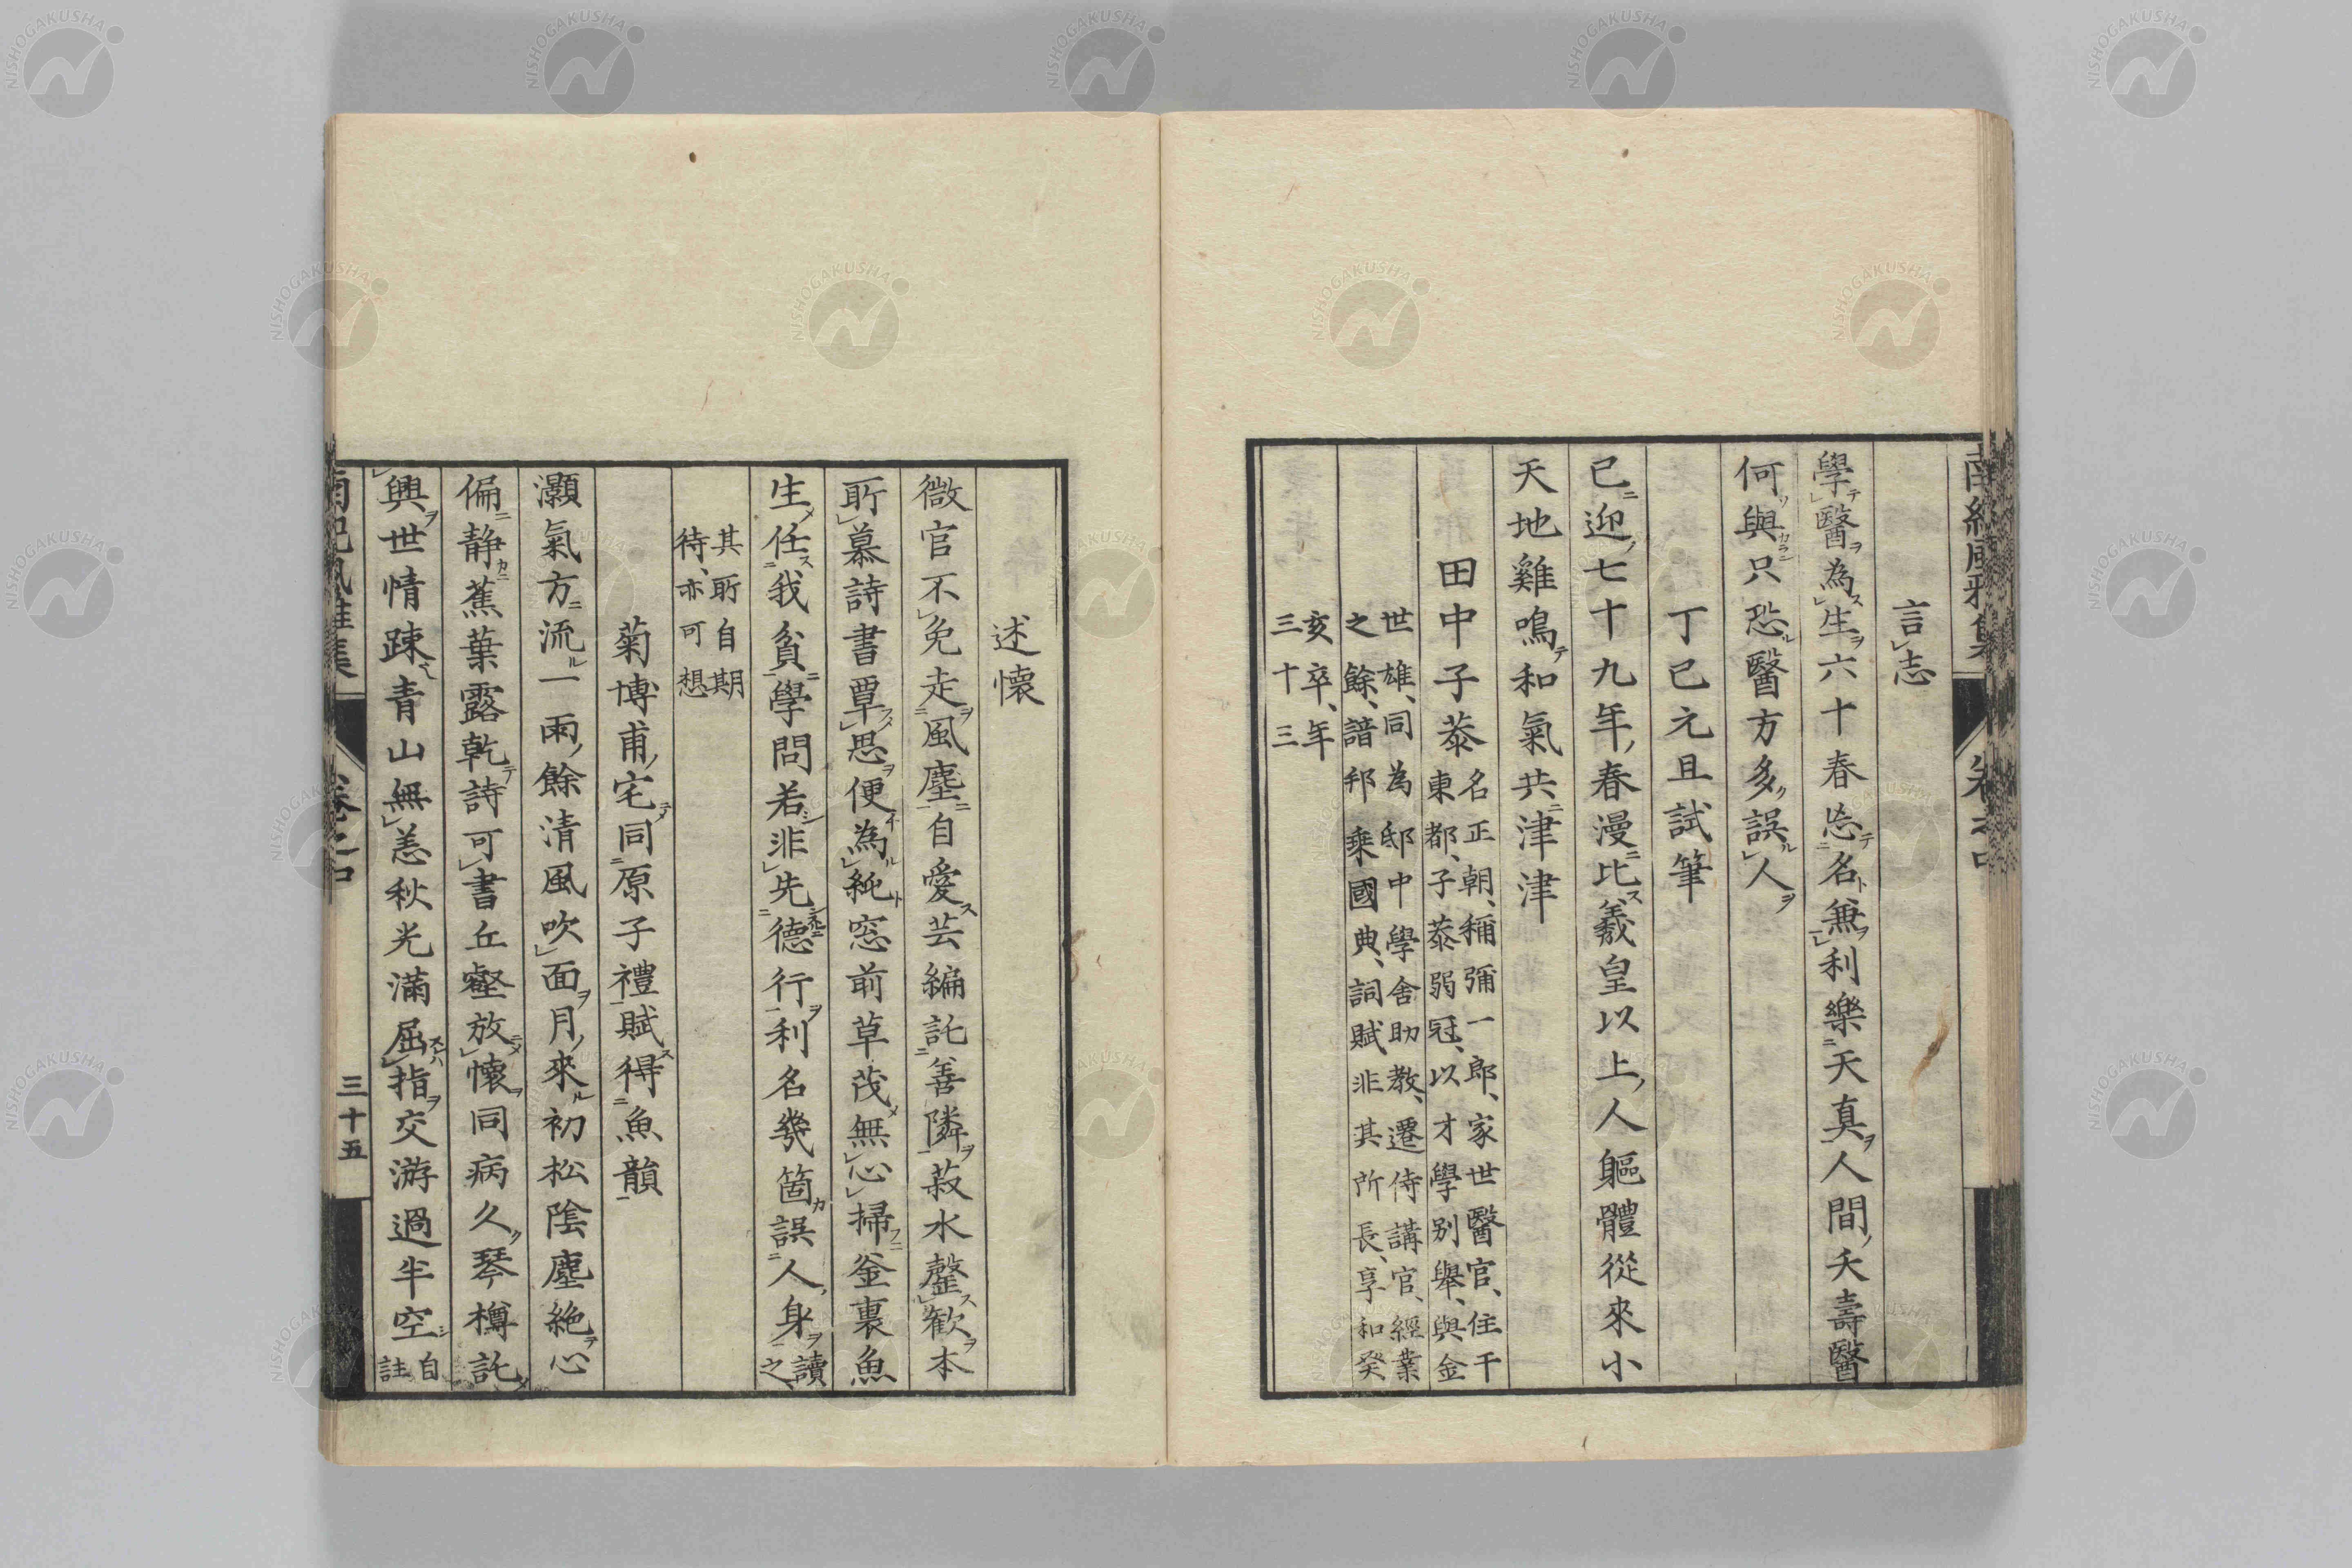 言志
學醫為生六十春㤀名兼利樂天真人間夭壽醫
何與只恐醫方多誤人
丁已元旦試筆
已迎七十九年春漫比羲皇以上人軀體從來小
天地雞鳴和氣共津津
田中子恭
名正朝、稱彌一郎、家世醫官、住于
東都、子恭弱冠、以才學別舉、與金
世雄、同為邸中學舍助教、遷侍講官、經業
之餘、諳邦乘國典、詞賦非其所長、享和癸
亥卒、年
三十三
述懷
微官不免走風塵自愛芸編託善隣菽水罄歓本
所慕詩書覃思便為純窓前草茂無心掃釜裏魚
生任我貧學問若非先德行利名幾箇誤人身
讀之、
其所自期
待、亦可想
菊博甫宅同原子禮賦得魚韻
灝氣方流一雨餘清風吹面月來初松陰塵絶心
偏静蕉葉露乾詩可書丘壑放懷同病久琴樽託
興世情踈青山無恙秋光滿屈指交游過半空
自註
卷之四
三十五
NISHOGAKUSHA